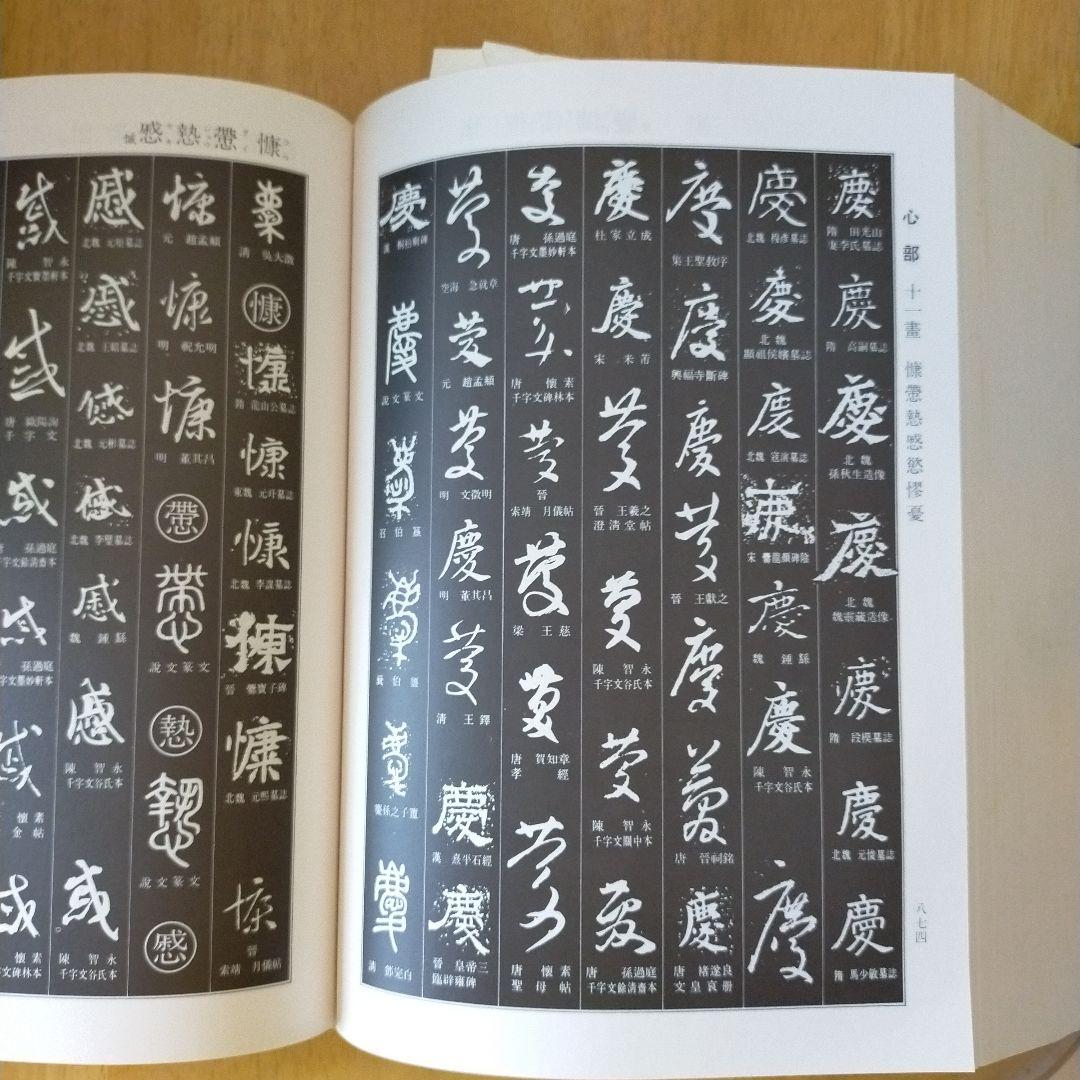 心部 十一畫 慷慸慹慼慾憀憂
八七四
慶
隋 田光山
妻李氏墓誌
慶
隋 高嗣墓誌
慶
北魏
孫秋生造像
慶
北魏
魏靈藏造像
慶
隋 段模墓誌
慶
北魏 元悛墓誌
慶
隋 馬少敏墓誌
慶
北魏 穆彥墓誌
慶
北魏
顯祖侯嬪墓誌
慶
北魏 寇演墓誌
慶
宋 爨龍顏碑陰
慶
魏 鍾繇
慶
陳 智永
千字文谷氏本
慶
慶
集王聖教序
慶
興福寺斷碑
慶
慶
晉 王獻之
慶
慶
唐 晉祠銘
慶
唐 褚遂良
文皇哀册
慶
杜家立成
慶
宋 米芾
慶
晉 王羲之
澄清堂帖
慶
陳 智永
千字文谷氏本
慶
陳 智永
千字文關中本
慶
唐 孫過庭
千字文餘清齋本
慶
唐 孫過庭
千字文墨妙軒本
慶
唐 懷素
千字文碑林本
慶
晉
索靖 月儀帖
慶
梁 王慈
慶
唐 賀知章
孝經
慶
唐 懷素
聖母帖
慶
空海 急就章
慶
元 趙孟頫
慶
明 文徵明
慶
明 董其昌
慶
清 王鐸
慶
漢 熹平石經
慶
晉 皇帝三
臨辟雍碑
慶
漢 桐柏廟碑
慶
說文篆文
慶
召伯簋
慶
慶
慶
慶
清 鄧完白
慷慸慹慼慽
清 吳大澂
慷
慷
隋 龍山公墓誌
慷
東魏 元玕墓誌
慷
北魏 李謀墓誌
慷
晉 爨寶子碑
慷
北魏 元熙墓誌
慷
晉
索靖 月儀帖
慷
元 趙孟頫
慷
明 祝允明
慷
明 董其昌
慸
慸
說文篆文
慹
慹
說文篆文
慼
慼
北魏 元暉墓誌
慼
北魏 王昭墓誌
慼
北魏 元彬墓誌
慼
北魏 李璧墓誌
慼
魏 鍾繇
慼
陳 智永
千字文谷氏本
陳 智永
千字文谷氏本
陳 智永
千字文寶墨軒本
唐 歐陽詢
千字文
唐 孫過庭
千字文餘清齋本
孫過庭
千字文墨妙軒本
懷素
千金帖
懷素
千字文碑林本